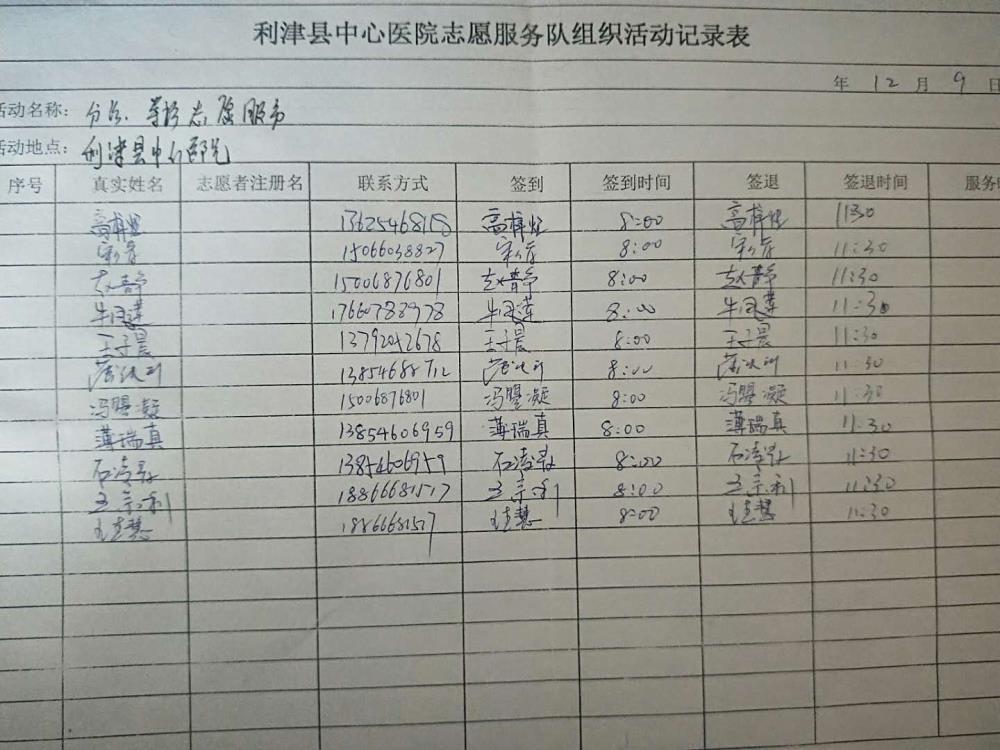 利津县中心医院志愿服务队组织活动记录表
年 12 月 9 日
活动名称: 分诊、导诊志愿服务
活动地点: 利津县中心医院
序号 真实姓名 志愿者注册名 联系方式 签到 签到时间 签退 签退时间 服务时
高梓煜 高梓煜 8:00 高梓煜 1130
15066038827 8:00 11:30
赵静 15006876801 赵静 8:00 赵静 11:30
牛凤莲 17660788978 牛凤莲 8:00 牛凤莲 11:30
王子晨 王子晨 8:00 王子晨 11:30
13854688712 8:00 11:30
冯曌凝 15006876801 冯曌凝 8:00 冯曌凝 11:30
薄瑞真 13854606959 薄瑞真 8:00 薄瑞真 11:30
13854606959 8:00 11:30
王宗利 18866681517 王宗利 8:00 王宗利 11:30
18866681517 8:00 11:30